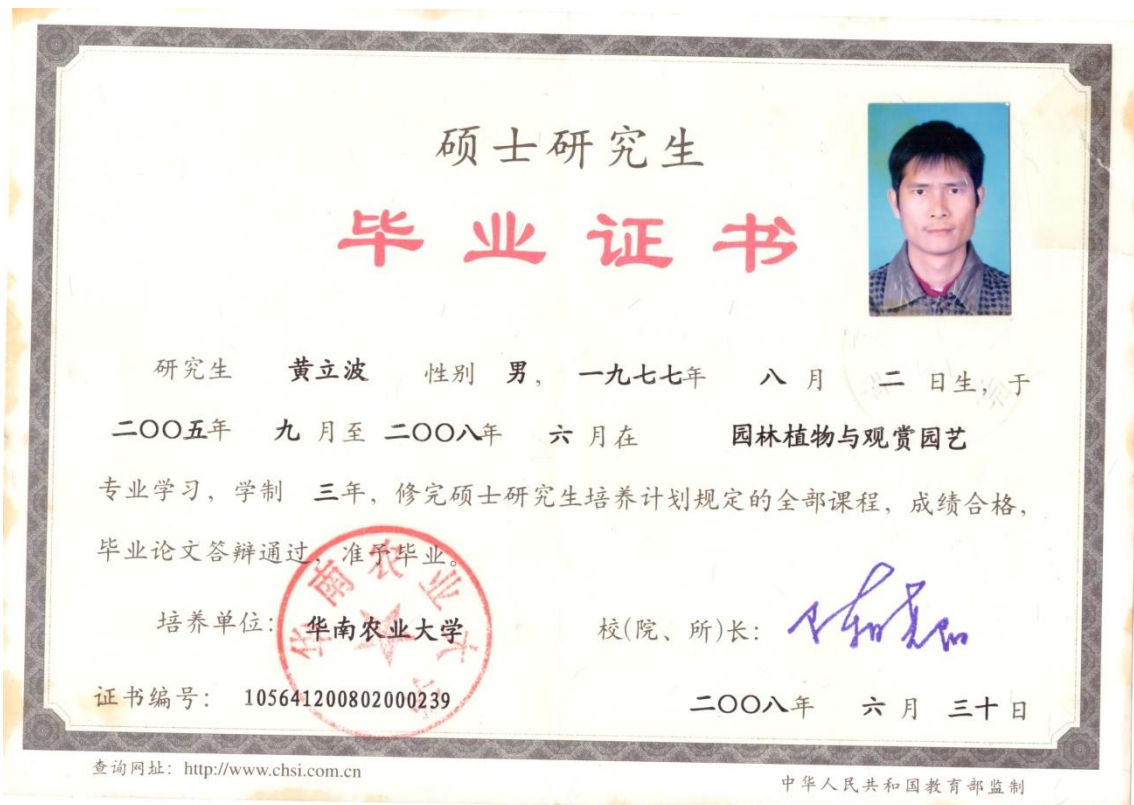 硕士研究生
毕业证书
研究生 黄立波 性别 男，一九七七年 八 月 二 日生，于
二〇〇五年 九 月至 二〇〇八年 六 月在 园林植物与观赏园艺
专业学习，学制 三年，修完硕士研究生培养计划规定的全部课程，成绩合格，
毕业论文答辩通过，准予毕业。
培养单位：华南农业大学
校(院、所)长：
证书编号：105641200802000239
二〇〇八年 六 月 三十 日
查询网址：http://www.chsi.com.cn
中华人民共和国教育部监制
华南农业大学